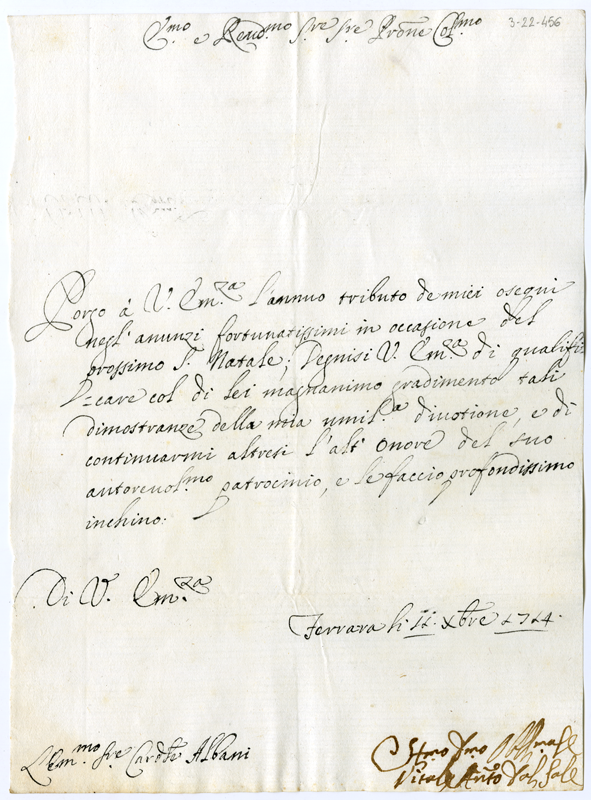 3-22-456
Em.mo e Rev.mo Sre Sre Prōne Col.mo
Porgo à V. Em.za l'annuo tributo de miei osequi
negl'anunzi fortunatissimi in occasione del
prossimo S. Natale; Degnisi V. Em.za di qualifi-
=care col di lei magnanimo gradimento tali
dimostranze della mia umil.a divotione, e di
continuarmi altresi l'alt' onore del suo
autorevol.mo patrocinio, e le faccio profondissimo
inchino.
Di V. Em.za
Ferrara li 11. Xbre 1714.
Em.mo Sre Card.le Albani